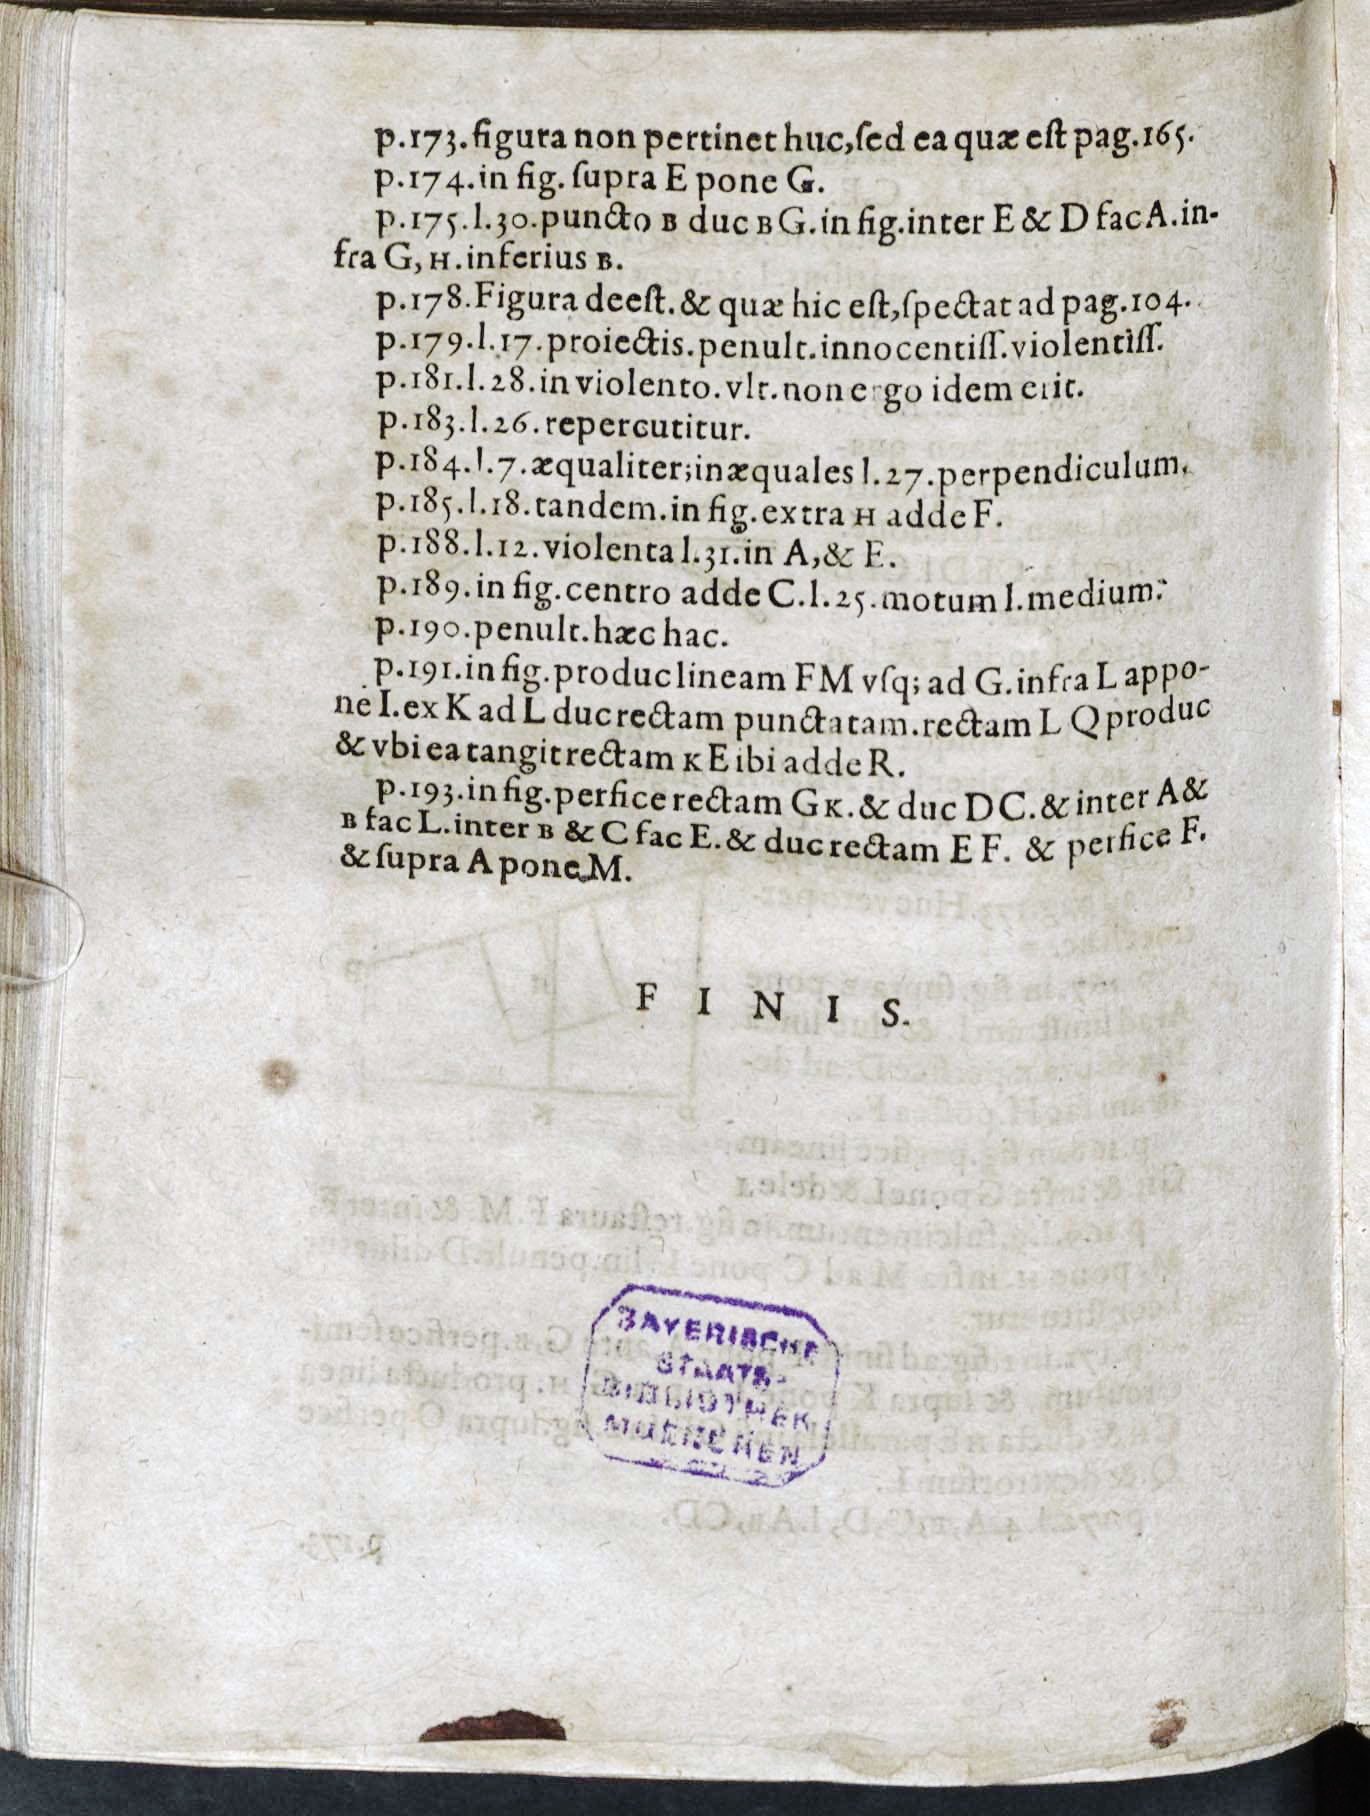 p.173.figura non pertinet huc,ſed ea quæ eſt pag.165.
p.174.in fig. ſupra E pone G.
p.175.l.30.puncto B duc B G.in fig.inter E & D fac A.in-
fra G, H.inferius B.
p.178.Figura deeſt.& quæ hic eſt,ſpectat ad pag.104.
p.179.l.17.proiectis.penult.innocentiſſ.violentiſſ.
p.181.l.28.in violento.vlt.non ergo idem erit.
p.183.l.26.repercutitur.
p.184.l.7.æqualiter;inæquales l.27.perpendiculum.
p.185.l.18.tandem.in fig.extra H adde F.
p.188.l.12.violenta l.31.in A,& E.
p.189.in fig.centro adde C.l.25.motum l.medium.
p.190.penult.hæc hac.
p.191.in fig.produc lineam FM vſq; ad G.infra L appo-
ne I.ex K ad L duc rectam punctatam.rectam L Q produc
& vbi ea tangit rectam K E ibi adde R.
p.193.in fig.perfice rectam G K.& duc D C.& inter A &
B fac L.inter B & C fac E.& duc rectam E F. & perfice F.
& ſupra A pone M.
F I N I S.
BAYERISCHE
STAATS-
BIBLIOTHEK
MUENCHEN